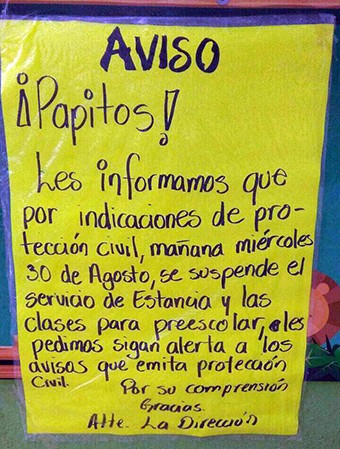 AVISO
¡Papitos!
Les informamos que
por indicaciones de pro-
tección civil, mañana miércoles
30 de Agosto, se suspende el
servicio de Estancia y las
clases para preescolar, les
pedimos sigan alerta a los
avisos que emita protección
civil. Por su comprensión
Gracias.
Atte. La Dirección